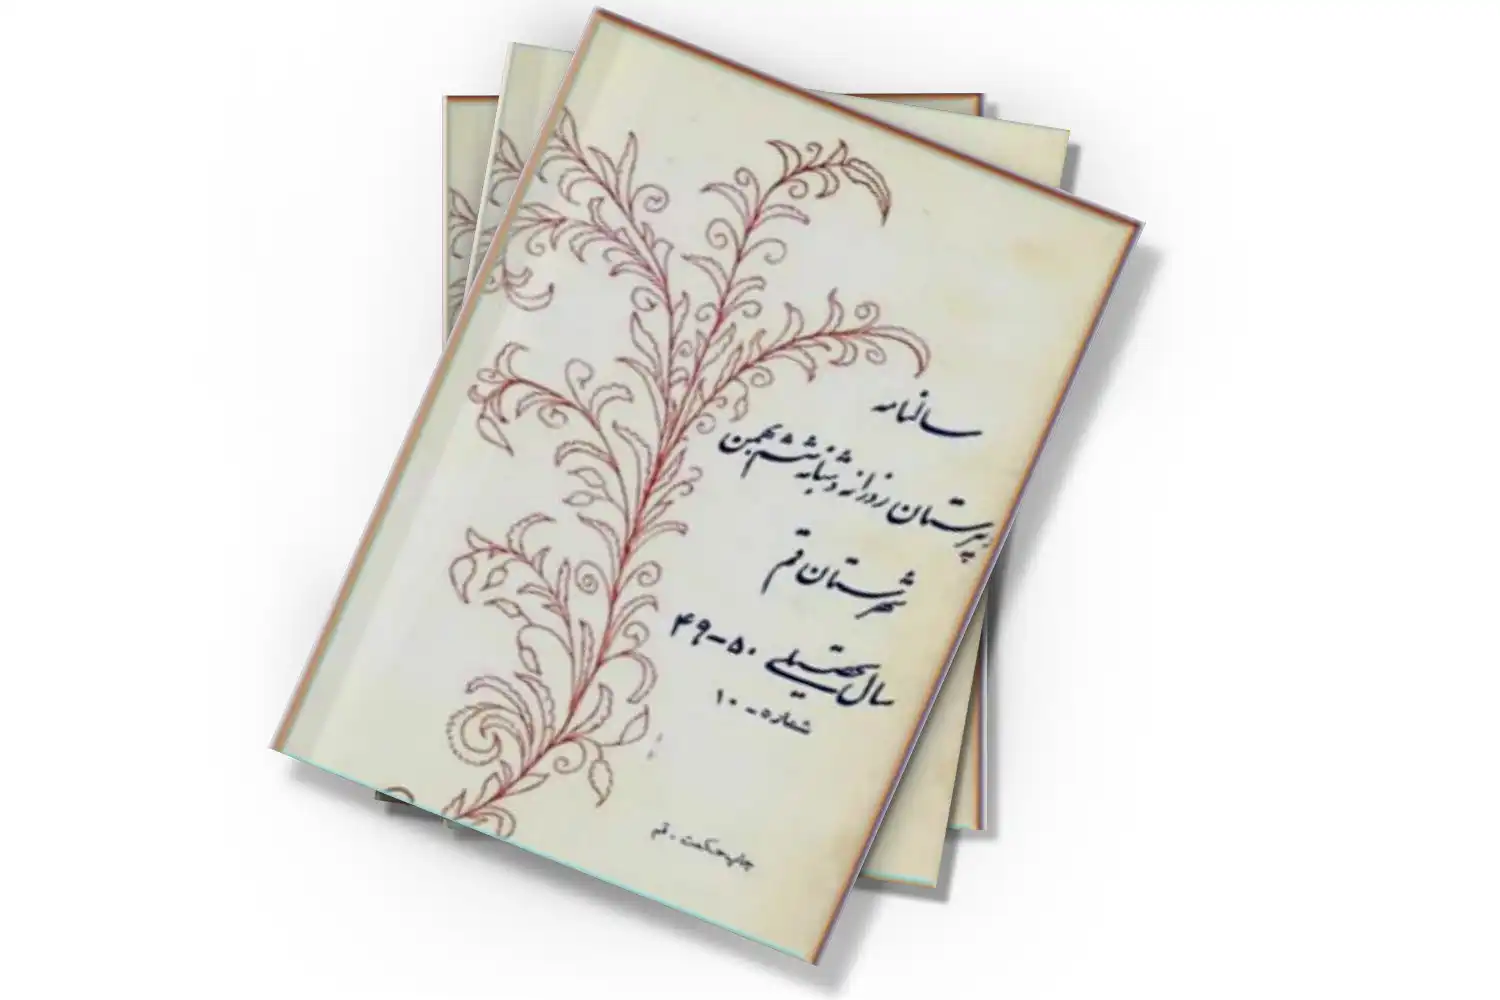 سالنامه
دبیرستان روزانه و شبانه ششم بهمن
شهرستان قم
سال تحصیلی ۵۰-۴۹
شماره - ۱۰
چاپ حکمت - قم